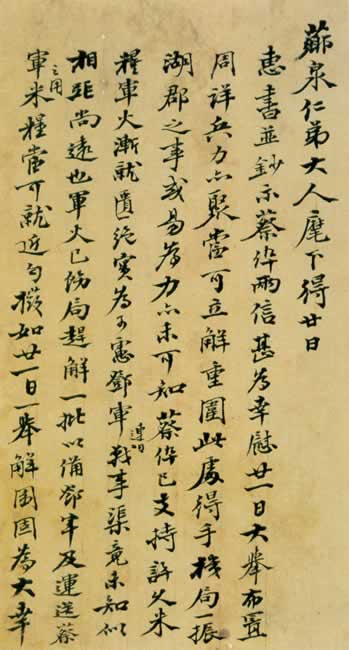 薌泉仁弟大人麾下得廿日
惠書並鈔示蔡倅兩信甚為幸慰廿一日大舉布置
周詳兵力亦聚當可立解重圍此處得手機局一振
湖郡之事或易為力亦未可知蔡倅已支持許久米
糧軍火漸就匱絕實為可慮鄧軍連日戰事渠竟未知似
相距尚遠也軍火已飭局趕解一批以備鄧軍及運送蔡
軍之用米糧當可就近勻撥如廿一日一舉解圍固為大幸